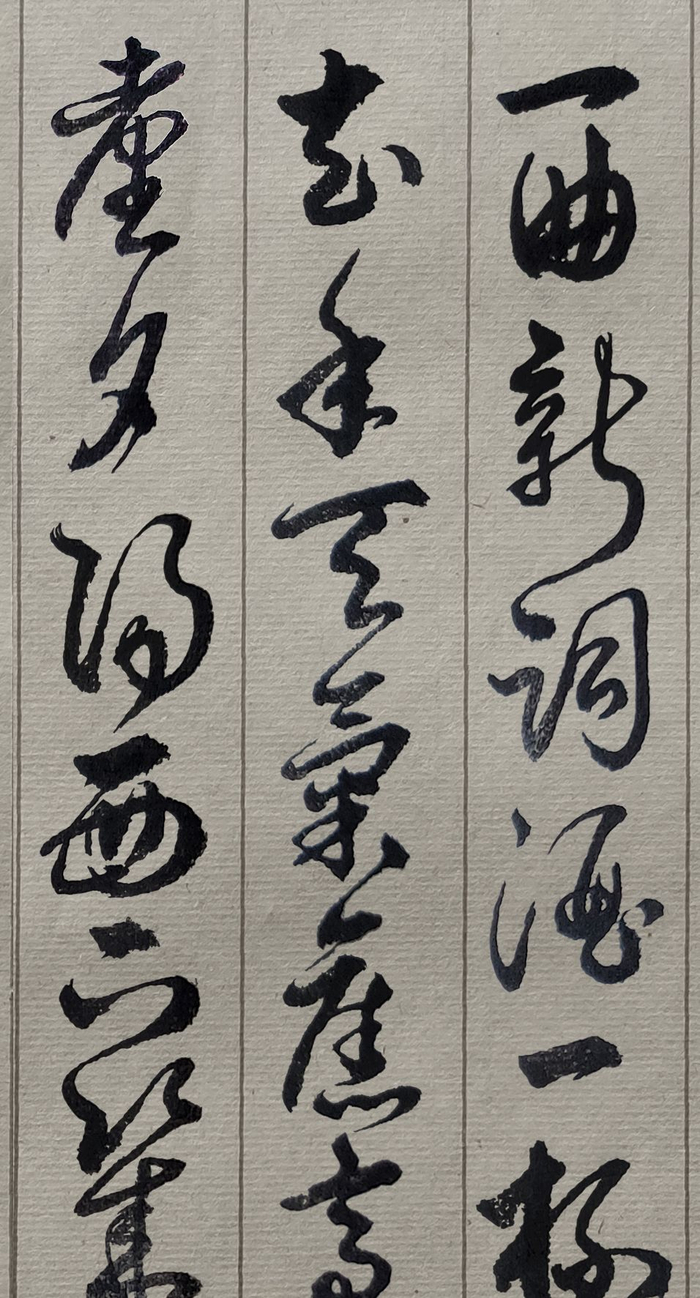 一曲新詞酒一杯
去年天氣舊亭
臺夕陽西下幾